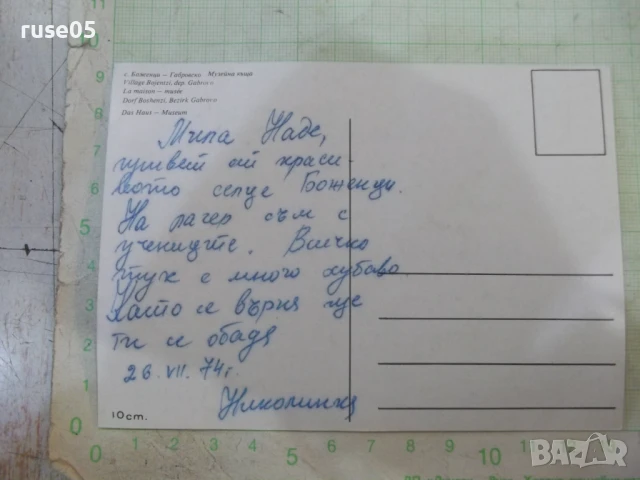 ruse05
с. Боженци — Габровско Музейна къща
Village Bojentzi, dep. Gabrovo
La maison — musée
Dorf Boshenzi, Bezirk Gabrovo
Das Haus — Museum
Мила Наде,
привет от краси-
вото селце Боженци.
На лагер съм с
учениците. Всичко
тук е много хубаво.
Като се върна ще
ти се обадя
26. VII. 74 г.
Николинка
10 cm.
BAZAR